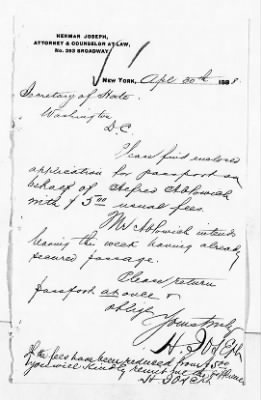 HERMAN JOSEPH,
ATTORNEY & COUNSELOR AT LAW,
No. 293 BROADWAY
NEW YORK, Apl 30th 1888.
Secretary of State
Washington
D.C.
Please find enclosed
application for passport on
behalf of Alfred Ablowich
with $5.00 usual fees.
Mr Ablowich intends
leaving this week having already
secured passage.
Please return
passport at once &
oblige
Yours truly
H. Joseph
If the fees have been reduced from $5.00
you will kindly remit me the difference
H Joseph